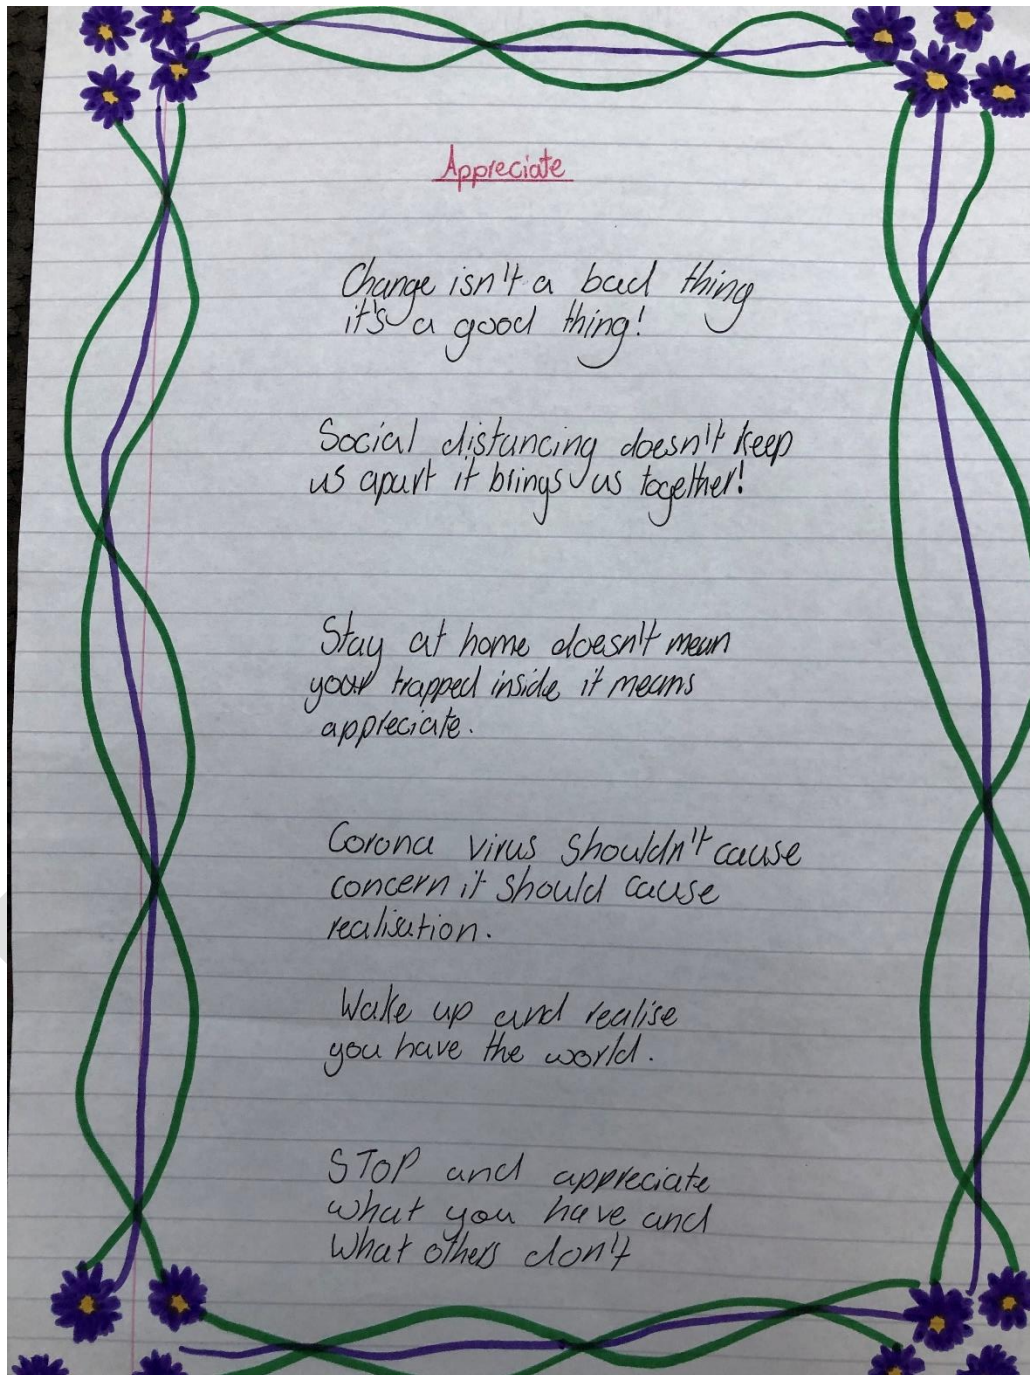 Appreciate
Change isn't a bad thing
it's a good thing!
Social distancing doesn't keep
us apart it brings us together!
Stay at home doesn't mean
your trapped inside it means
appreciate.
Corona virus shouldn't cause
concern it should cause
realisation.
Wake up and realise
you have the world.
STOP and appreciate
what you have and
what others don't